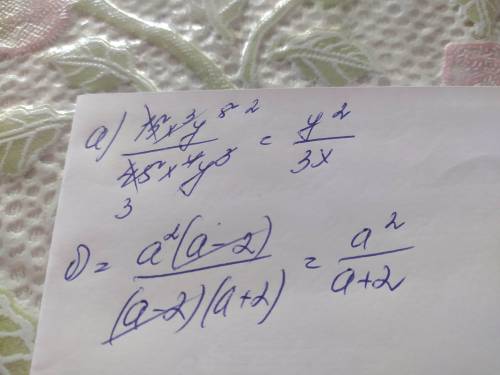 а) 15x³y⁵ ² / 45x⁴y³ 3 = y² / 3x
б) = a²(a-2) / (a-2)(a+2) = a² / a+2